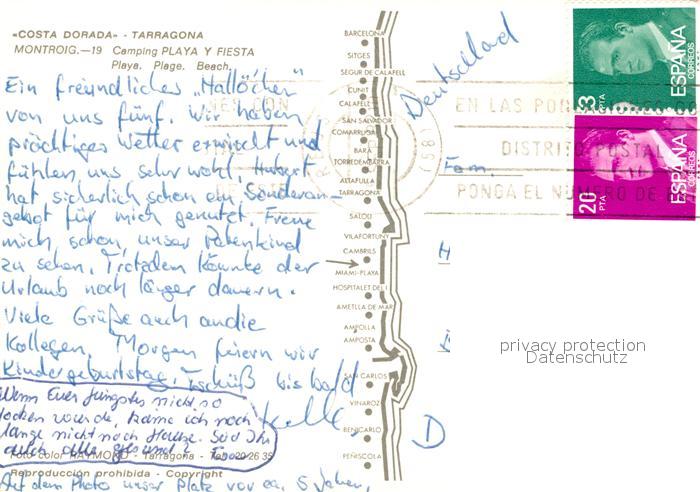 «COSTA DORADA» - TARRAGONA
MONTROIG.—19 Camping PLAYA Y FIESTA
Playa. Plage. Beach.
Ein freundliches „Hallöchen"
von uns fünf. Wir haben
prächtiges Wetter erwischt und
fühlen uns sehr wohl. Hubert
hat sicherlich schon ein Sonderan-
gebot für mich genutzt. Freue
mich schon, unser Patenkind
zu sehen. Trotzdem könnte der
Urlaub noch länger dauern.
Viele Grüße auch an die
Kollegen. Morgen feiern wir
Kindergeburtstag. Tschüß bis bald
Wenn Euer Jüngstes nicht so
locken würde, käme ich noch
lange nicht nach Hause. Seid Ihr
auch alle gesund?
Foto color RAYMOND - Tarragona - Telf. 20 26 35
Reproducción prohibida - Copyright
Auf dem Photo unser Platz vor ca. 5 Jahren,
BARCELONA
SITGES
SEGUR DE CALAFELL
CUNIT
CALAFELL
SAN SALVADOR
COMARRUGA
BARA
TORREDEMBARRA
ALTAFULLA
TARRAGONA
SALOU
VILAFORTUNY
CAMBRILS
MIAMI-PLAYA
HOSPITALET DEL I
AMETLLA DE MAR
AMPOLLA
AMPOSTA
SAN CARLOS
VINAROZ
BENICARLO
PEÑISCOLA
Deutschland
Fam.
H
D
EN LAS POB
DISTRITO POSTAL
PONGA EL NUMERO DE
33 PTA
ESPAÑA
CORREOS
20 PTA
ESPAÑA
CORREOS
privacy protection
Datenschutz